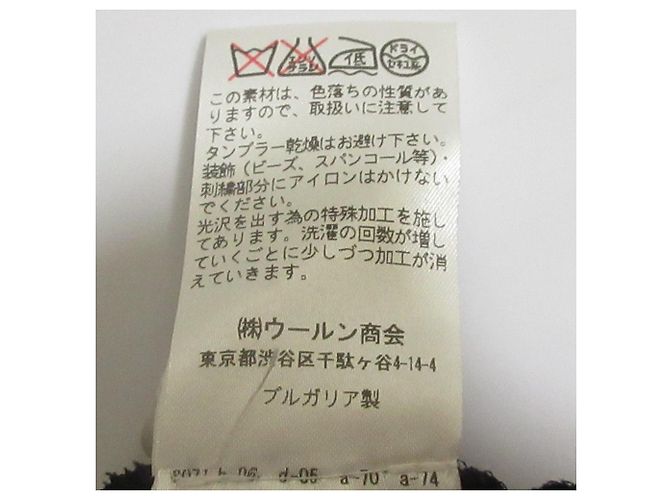 エンソ
サラシ
低
ドライ
セキユ系
この素材は、色落ちの性質があ
りますので、取扱いに注意して
下さい。
タンブラー乾燥はお避け下さい。
装飾（ビーズ、スパンコール等）・
刺繍部分にアイロンはかけない
でください。
光沢を出す為の特殊加工を施し
てあります。洗濯の回数が増し
ていくごとに少しづつ加工が消
えていきます。
㈱ウールン商会
東京都渋谷区千駄ヶ谷4-14-4
ブルガリア製
d-05 a-70 a-74